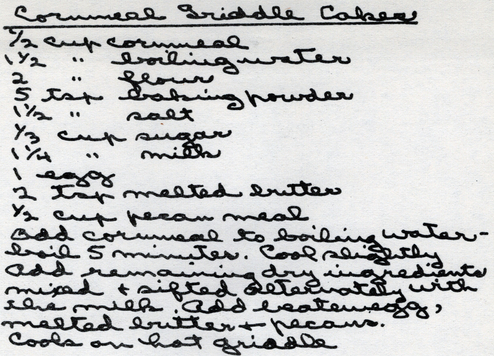 Cornmeal Griddle Cakes
1/2 cup cornmeal
1 1/2 " boiling water
2 " flour
5 tsp baking powder
1 1/2 " salt
1/3 cup sugar
1 1/4 " milk
1 egg
2 tsp melted butter
1/2 cup pecan meal
Add cornmeal to boiling water-
boil 5 minutes. Cool slightly
Add remaining dry ingredients
mixed + sifted alternately with
the milk. Add beaten egg,
melted butter + pecans.
Cook on hot griddle